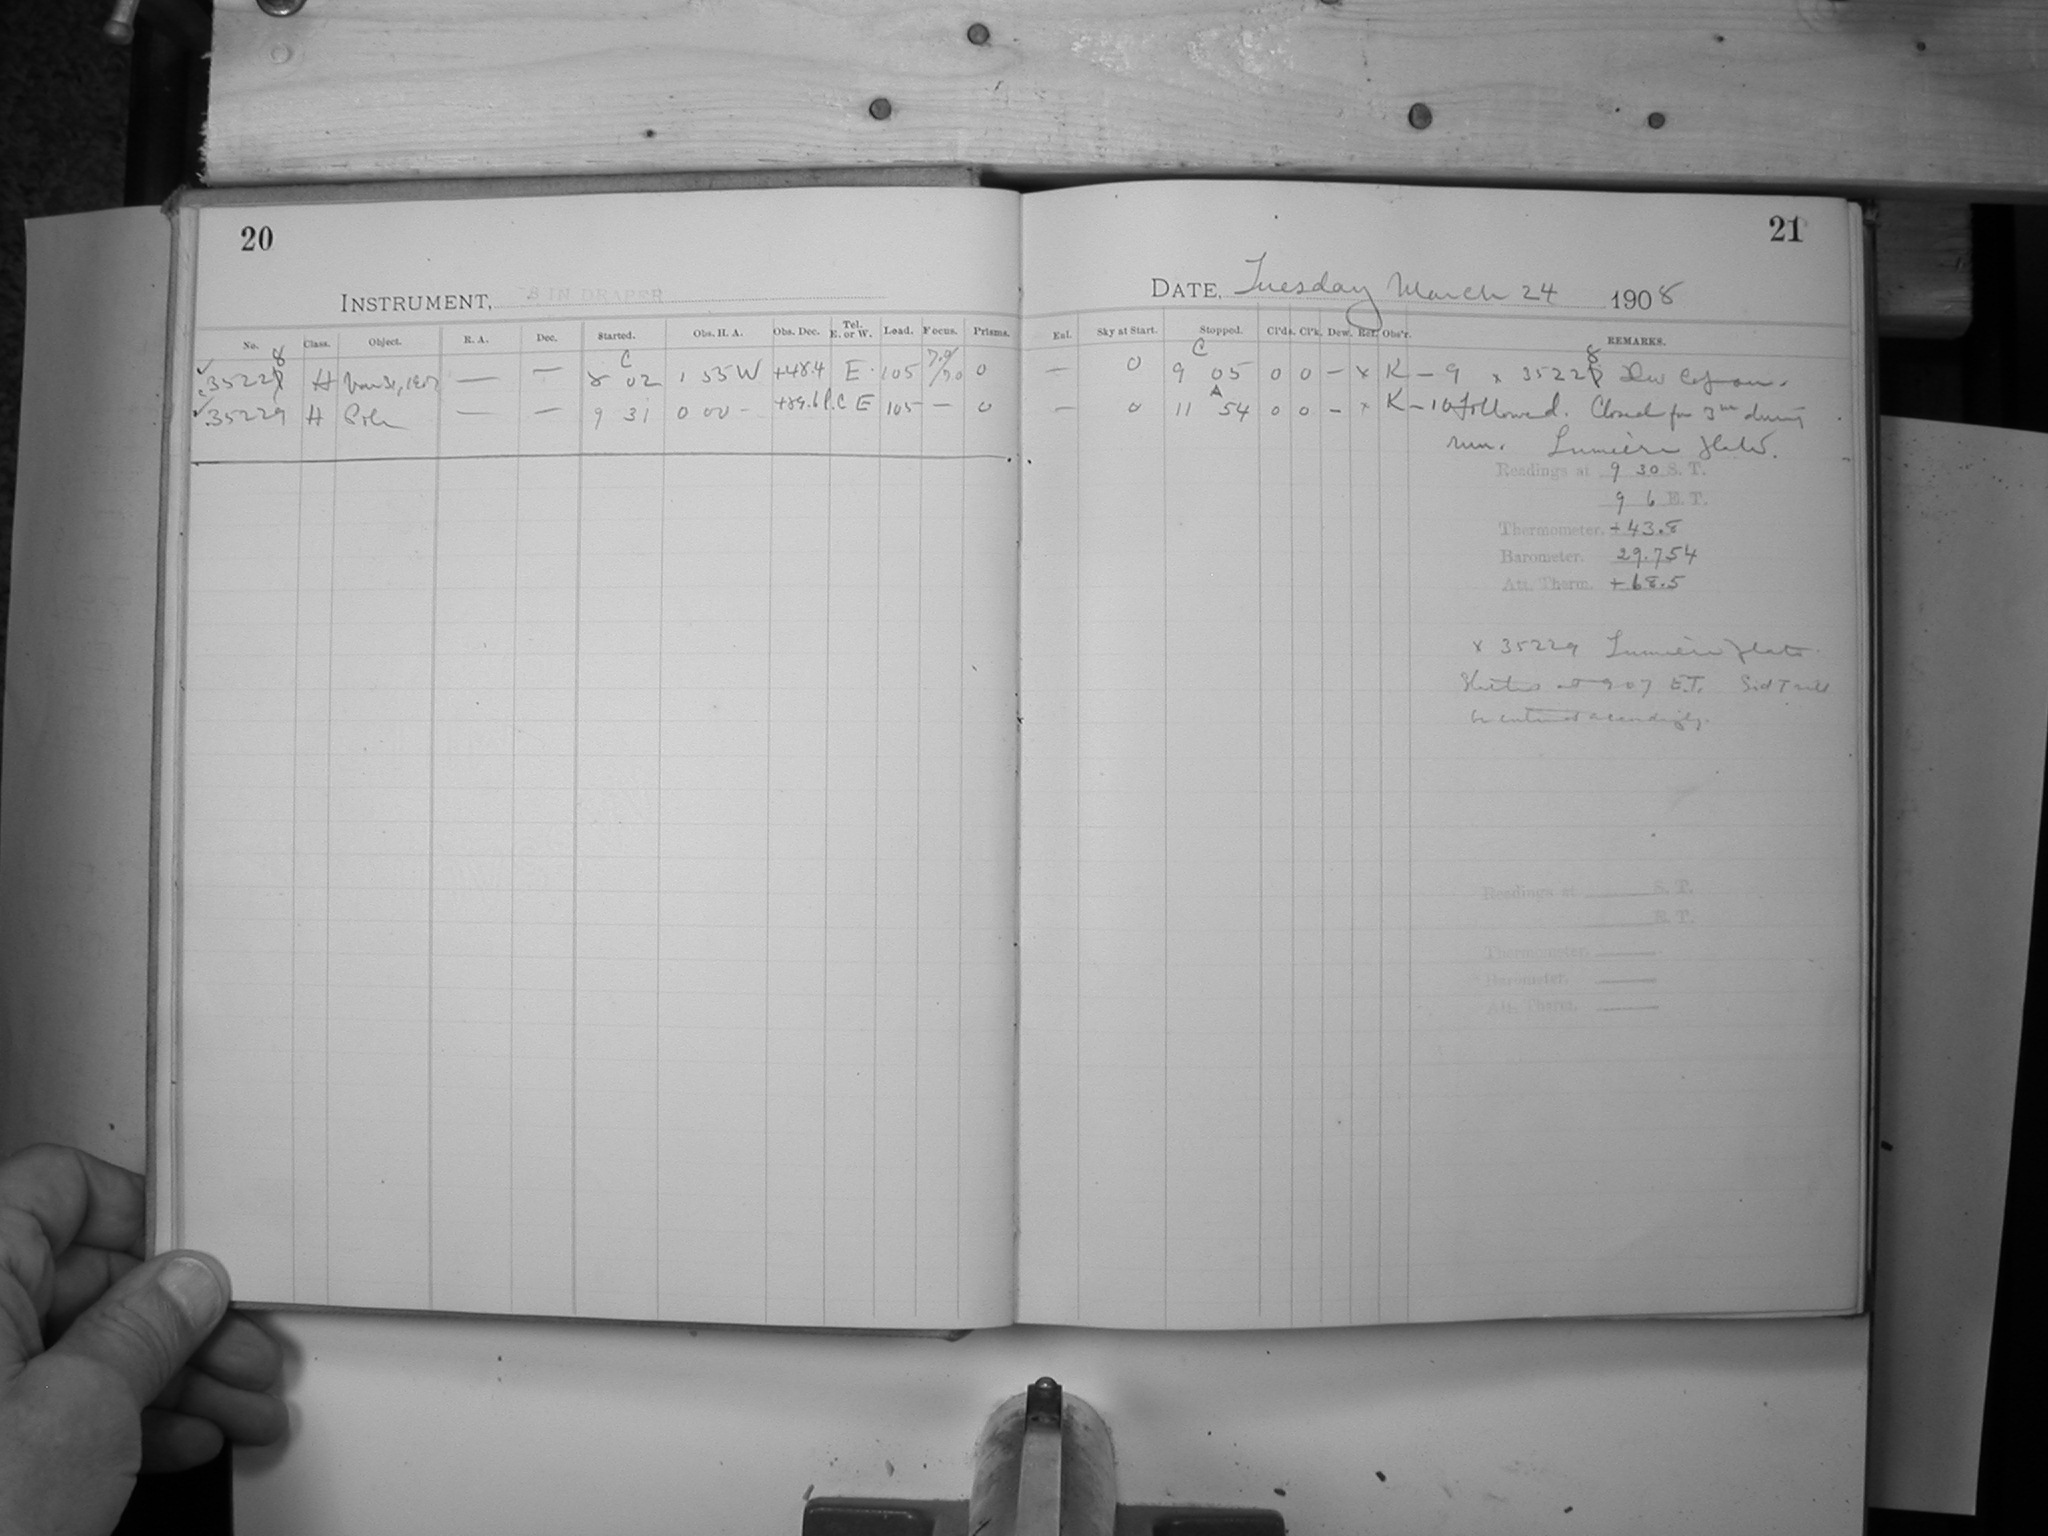 20
21
INSTRUMENT, 8 IN DRAPER
DATE, Tuesday March 24 1908
No. Class. Object. R. A. Dec. Started. Obs. H. A. Obs. Dec. Tel. E. or W. Load. Focus. Prisms. Enl. Sky at Start. Stopped. Cl'ds. Cl'k. Dew. Ref. Obs'r. REMARKS.
8 C C 8
35228 H — — 8 02 1 55 W +48.4 E 105 7.9/7.0 0 — 0 9 05 0 0 — x K — 9 x 35228
A
35229 H Pole — — 9 31 0 00 — +89.6 P.C E 105 — 0 — 0 11 54 0 0 — x K — 10 followed. Closed for 3m during
run. Lumière plate.
Readings at 9 30 S. T.
9 6 E. T.
Thermometer. +43.8
Barometer. 29.754
Att. Therm. +68.5
x 35229 Lumière plate
at 9 07 E.T. Sid T will
be entered accordingly.
Readings at S. T.
E. T.
Thermometer.
Barometer.
Att. Therm.